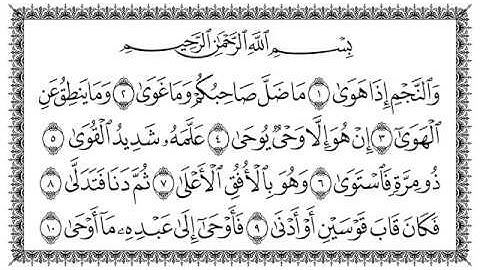 بِسْمِ اللَّهِ الرَّحْمَٰنِ الرَّحِيمِ
وَالنَّجْمِ إِذَا هَوَىٰ ١ مَا ضَلَّ صَاحِبُكُمْ وَمَا غَوَىٰ ٢ وَمَا يَنطِقُ عَنِ
الْهَوَىٰ ٣ إِنْ هُوَ إِلَّا وَحْيٌ يُوحَىٰ ٤ عَلَّمَهُ شَدِيدُ الْقُوَىٰ ٥
ذُو مِرَّةٍ فَاسْتَوَىٰ ٦ وَهُوَ بِالْأُفُقِ الْأَعْلَىٰ ٧ ثُمَّ دَنَا فَتَدَلَّىٰ ٨
فَكَانَ قَابَ قَوْسَيْنِ أَوْ أَدْنَىٰ ٩ فَأَوْحَىٰ إِلَىٰ عَبْدِهِ مَا أَوْحَىٰ ١٠